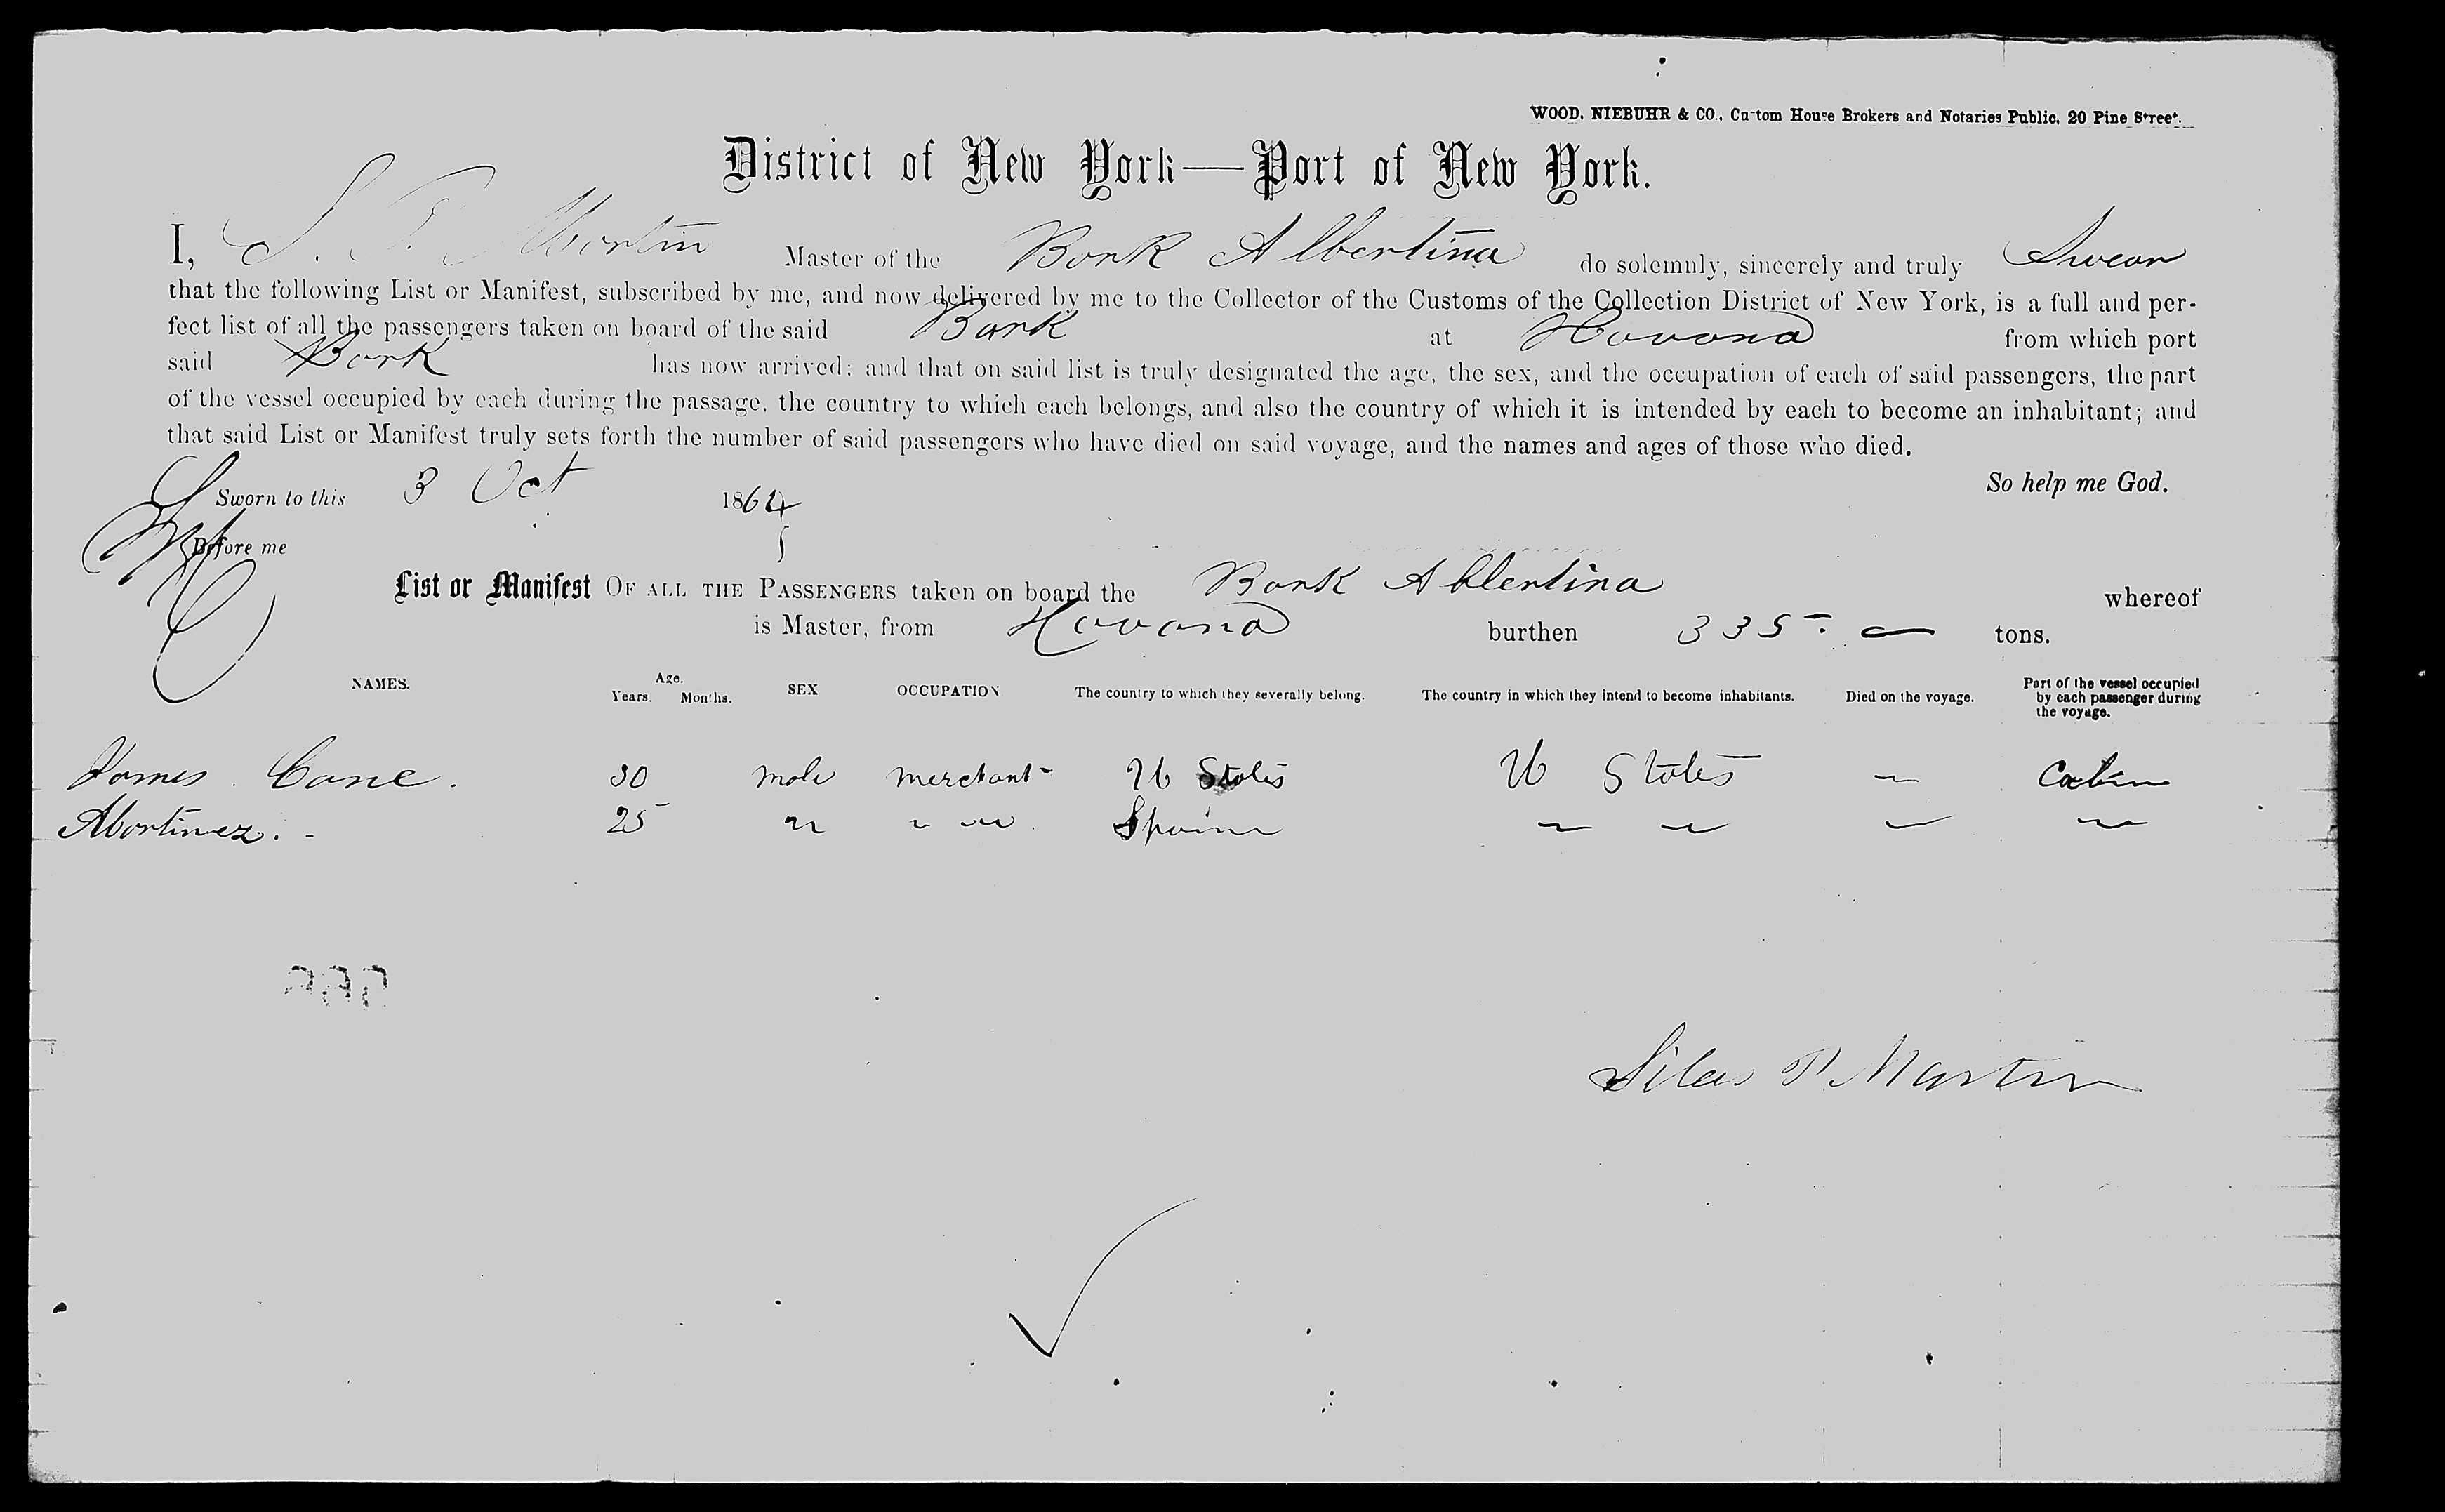 WOOD, NIEBUHR & CO., Custom House Brokers and Notaries Public, 20 Pine Street.
District of New York—Port of New York.
I, S. P. Martin Master of the Bark Albertina do solemnly, sincerely and truly Swear
that the following List or Manifest, subscribed by me, and now delivered by me to the Collector of the Customs of the Collection District of New York, is a full and per-
fect list of all the passengers taken on board of the said Bark at Havana from which port
said Bark has now arrived: and that on said list is truly designated the age, the sex, and the occupation of each of said passengers, the part
of the vessel occupied by each during the passage, the country to which each belongs, and also the country of which it is intended by each to become an inhabitant; and
that said List or Manifest truly sets forth the number of said passengers who have died on said voyage, and the names and ages of those who died.
So help me God.
Sworn to this 3 Oct 1864
Before me
List or Manifest OF ALL THE PASSENGERS taken on board the Bark Albertina whereof
is Master, from Havana burthen 335 — tons.
NAMES. Age. Years. Months. SEX OCCUPATION The country to which they severally belong. The country in which they intend to become inhabitants. Died on the voyage. Part of the vessel occupied by each passenger during the voyage.
James Cane. 30 male merchant U States U States — Cabin
Martinez. - 25 " " " Spain " " " "
Silas P Martin